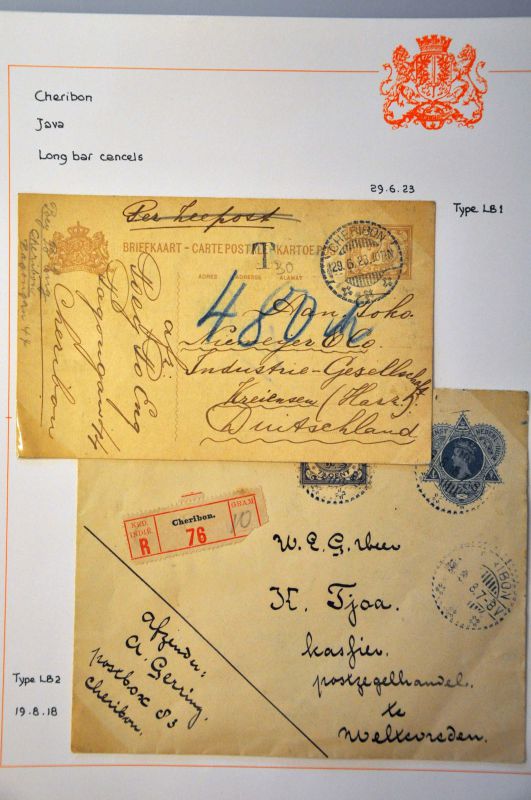 Cheribon
Java
Long bar cancels
29.6.23
Type LB1
Per Zeepost
BRIEFKAART - CARTE POSTALE - KARTOE POS
ADRES ADRESSE ALAMAT
T
30
CHERIBON
29.6.23.10
480
Aan Toko.
Industrie-Gesellschaft
Kreiensen (Harz)
Duitschland
afz.
Cheribon
NED. INDIË.
GRAM
Cheribon.
R 76
10
RIBON
7-8V
W. E. G. Heer
K. Tjoa.
kassier.
postzegelhandel.
te
Weltevreden.
Afzender:
A. Gerring.
postbox 83
Cheribon.
Type LB2
19.8.18